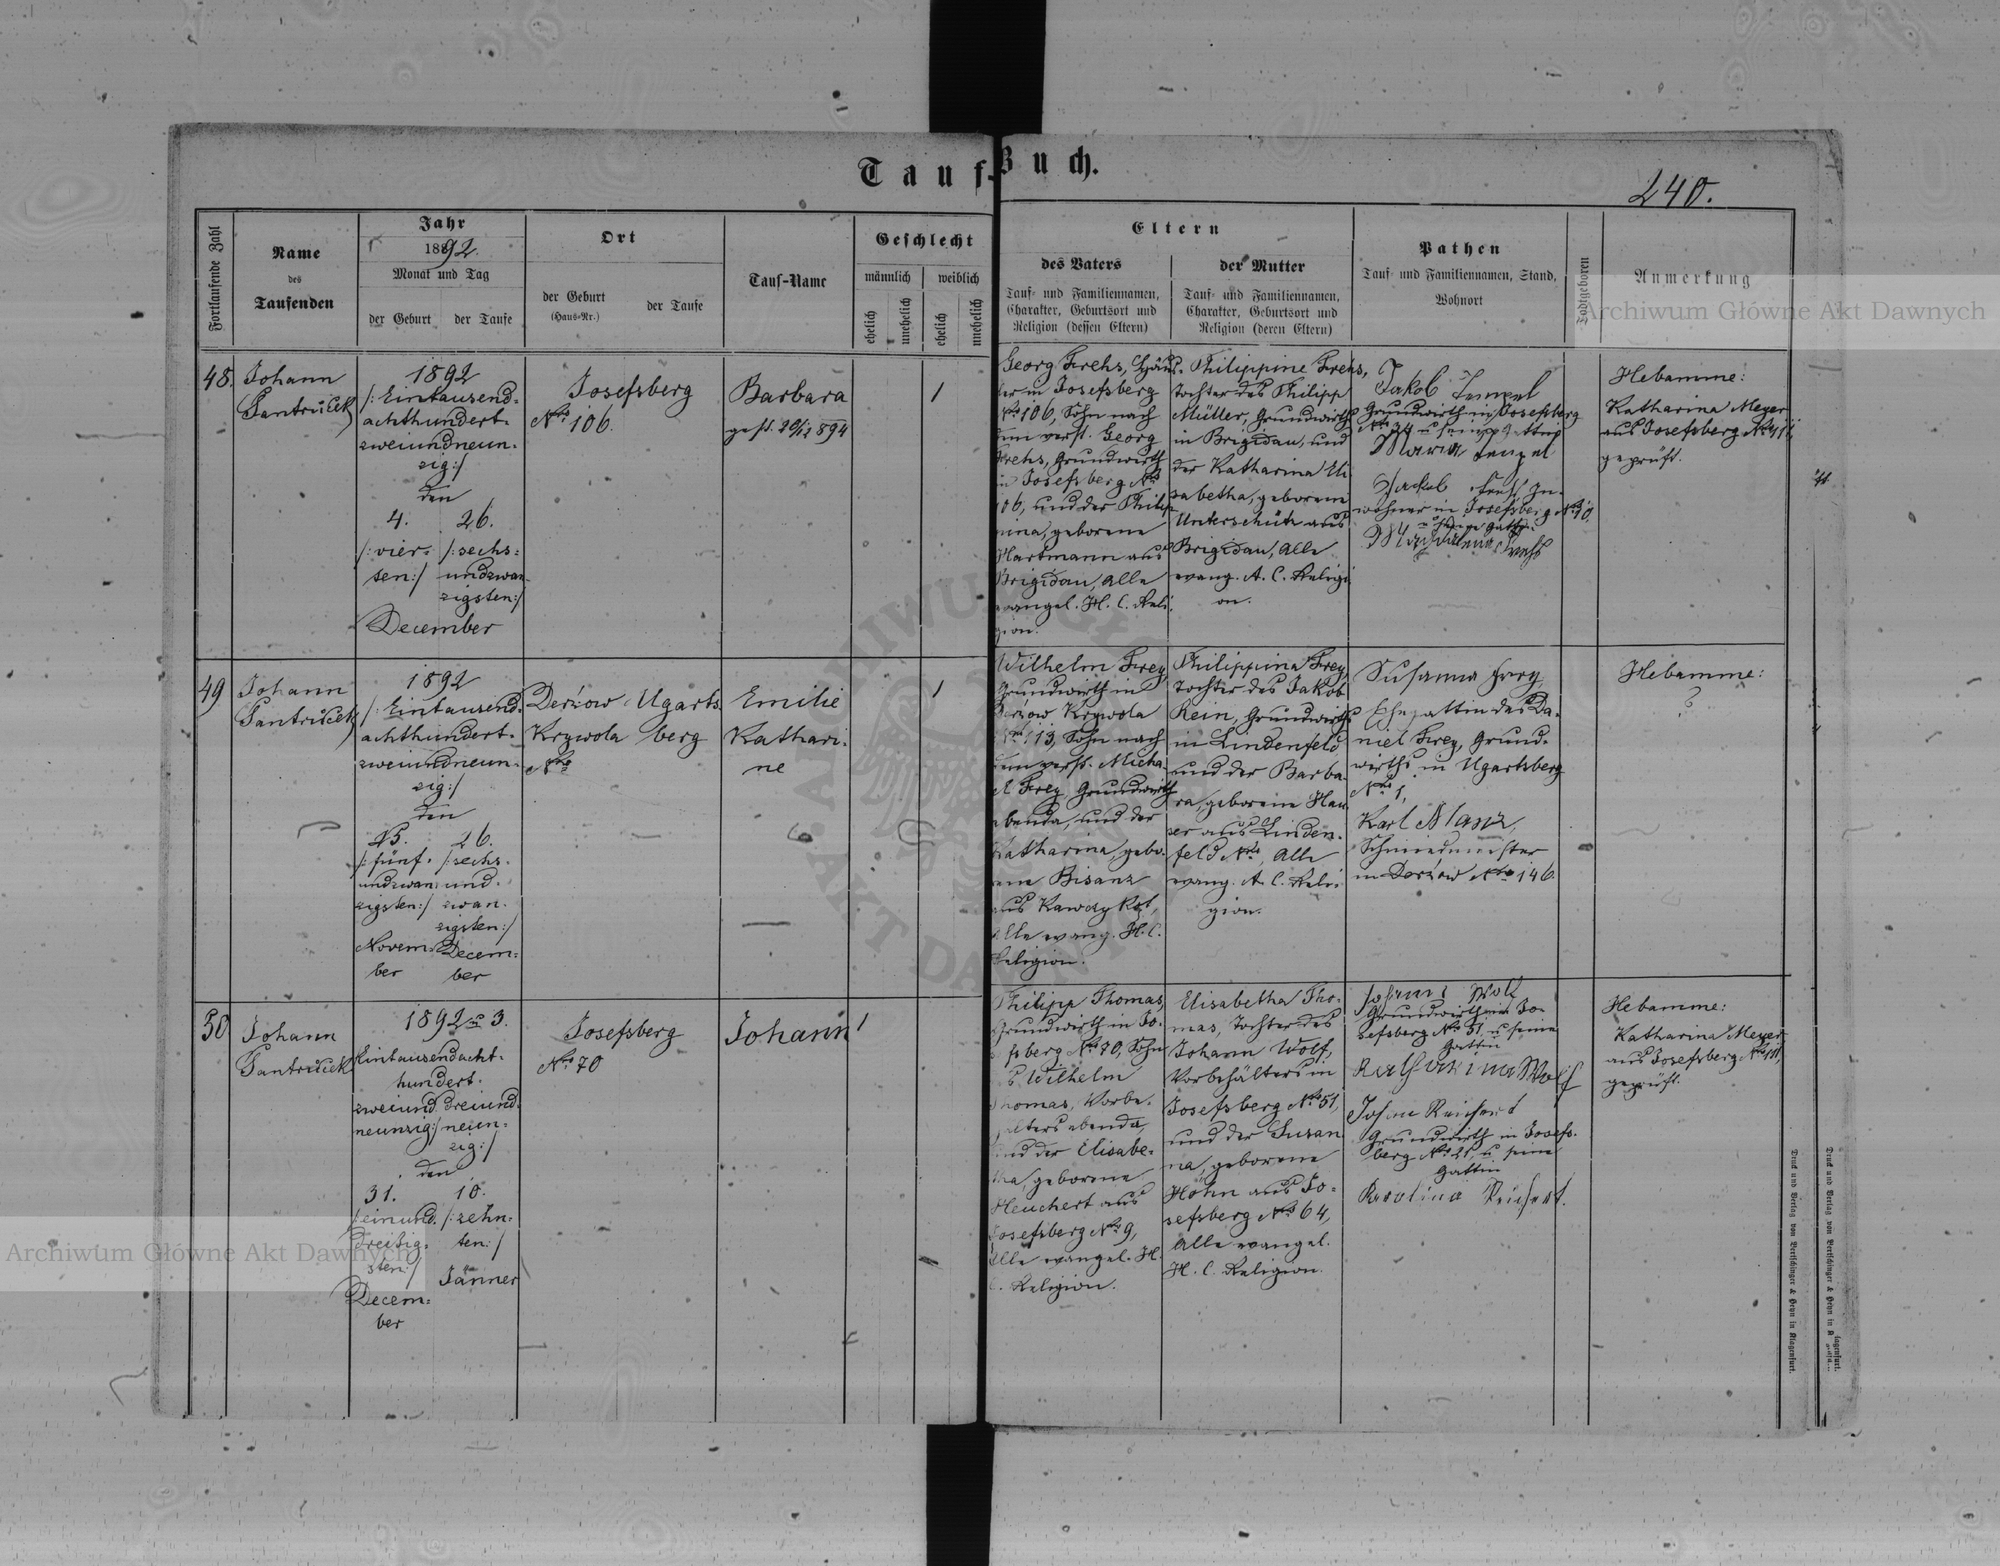 Tauf-Buch.
240.
Fortlaufende Zahl
Name
des
Taufenden
Jahr
1892.
Monat und Tag
der Geburt
der Taufe
Ort
der Geburt
(Haus-Nr.)
der Taufe
Tauf-Name
Geschlecht
männlich
weiblich
ehelich
unehelich
ehelich
unehelich
Eltern
des Vaters
Tauf- und Familiennamen,
Charakter, Geburtsort und
Religion (dessen Eltern)
der Mutter
Tauf- und Familiennamen,
Charakter, Geburtsort und
Religion (deren Eltern)
Pathen
Tauf- und Familiennamen, Stand,
Wohnort
Todtgeboren
Anmerkung
48.
Johann
Gantruček
1892
/: Eintausend=
achthundert=
zweiundneun=
zig :/
den
4.
/: vier=
ten :/
26.
/: sechs=
undzwan=
zigsten :/
December
Josefsberg
Nro 106.
Barbara
gest. 894
1
Georg Frehs, Häus-
ler in Josefsberg
Nro 106, Sohn nach
dem verst. Georg
Frehs, Grundwirth
in Josefsberg Nro
106, und der Philip
pina, geborene
Hartmann aus
Brigidau, alle
evangel. H. C. Reli
gion.
Philippine Frehs,
Tochter des Philipp
Müller, Grundwirth
in Brigidau, und
der Katharina Eli
sabetha, geborene
Unterschütz aus
Brigidau, alle
evang. A. C. Religi
on.
Jakob Tempel
Grundwirth in Josefsberg
Nro 34 u seine Gattin
Maria Tempel
Jakob Frehs, In=
wohner in Josefsberg Nro 10.
u seine Gattin
Magdalena Frehs
Hebamme:
Katharina Meyer
aus Josefsberg Nro 111,
geprüft.
49
Johann
Gantruček
1892
/: Eintausend=
achthundert=
zweiundneun=
zig :/
den
25.
/: fünf=
undzwan
zigsten :/
Novem=
ber
26.
/: sechs=
und=
zwan=
zigsten :/
Decem=
ber
Derżow
Krywola
Nro
Ugarts
berg
Emilie
Kathari=
ne
1
Wilhelm Frey,
Grundwirth in
Derżow Krywola
Nro 113, Sohn nach
dem verst. Micha=
el Frey, Grundwirth
ebenda, und der
Katharina, gebo=
rene Bisanz
aus Kawczy Kąt,
alle evang. H. C.
Religion.
Philippina Frey,
Tochter des Jakob
Rein, Grundwirths
in Lindenfeld
und der Barba=
ra, geborene Hau
ser aus Linden=
feld Nro, alle
evang. A. C. Reli=
gion.
Susanna Frey,
Ehegattin des Da=
niel Frey, Grund=
wirths in Ugartsberg
Nro 1,
Karl Manz,
Schmiedmeister
in Derżow Nro 146.
Hebamme:
?
50
Johann
Gantruček
1892 u 3.
Eintausendacht=
hundert=
zweiund
neunzig :/
dreiund=
neun=
zig :/
den
31.
/: einund=
dreißig=
sten :/
Decem=
ber
10.
/: zehn=
ten :/
Jänner
Josefsberg
Nro 70
Johann
1
Philipp Thomas,
Grundwirth in Jo=
sefsberg Nro 70, Sohn
d. Wilhelm
Thomas, Vorbe=
hälters ebenda,
und der Elisabe=
tha, geborene
Heuchert aus
Josefsberg Nro 9,
alle evangel. H.
C. Religion.
Elisabetha Tho=
mas, Tochter des
Johann Wolf,
Vorbehälters in
Josefsberg Nro 51,
und der Susan
na, geborene
Höhn aus Jo=
sefsberg Nro 64,
alle evangel.
H. C. Religion.
Johann Wolf
Grundwirth in Jo=
sefsberg Nro 51 u seine
Gattin
Katharina Wolf
Johann Reichert
Grundwirth in Josefs=
berg Nro 21, u seine
Gattin
Karolina Reichert.
Hebamme:
Katharina Meyer
aus Josefsberg Nro 111,
geprüft.
Druck und Verlag von Bertschinger & Heyn in Klagenfurt.
Druck und Verlag von Bertschinger & Heyn in Klagenfurt.
Archiwum Główne Akt Dawnych
Archiwum Główne Akt Dawnych